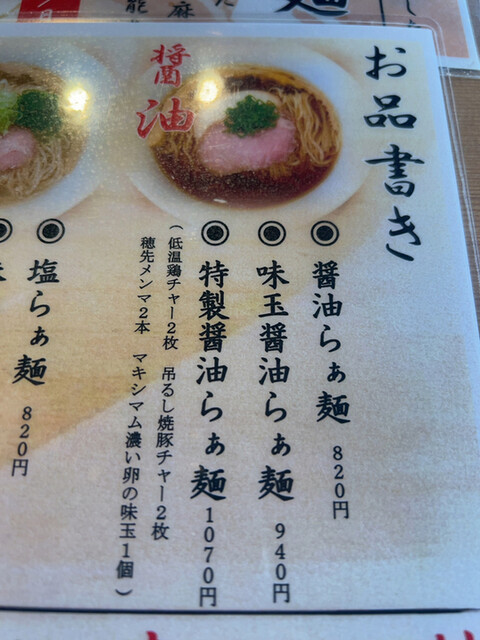 お品書き
醤油
◉醤油らぁ麺 820円
◉味玉醤油らぁ麺 940円
◉特製醤油らぁ麺 1070円
(低温鶏チャー2枚 吊るし焼豚チャー2枚
穂先メンマ2本 マキシマム濃い卵の味玉1個)
◉塩らぁ麺 820円